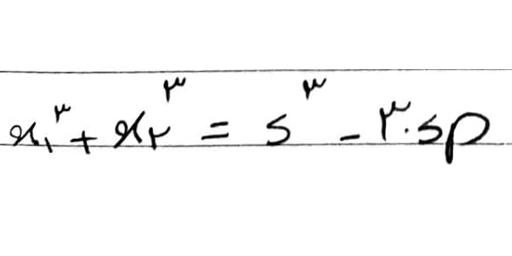 x₁^۳ + x₂^۳ = s^۳ - ۳.sp